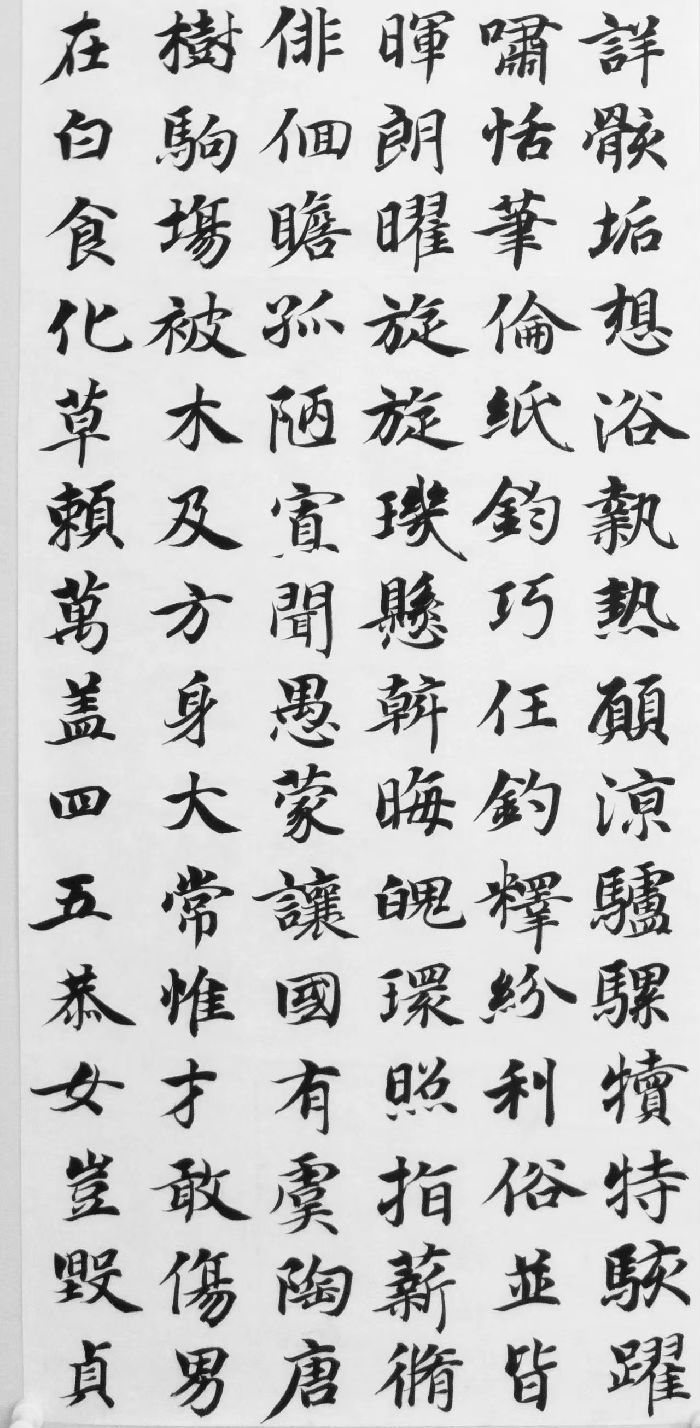 詳骸垢想浴執熱願涼驢騾犢特駭躍
嘯恬筆倫紙鈞巧任釣釋紛利俗並皆
暉朗曜旋旋璣懸斡晦魄環照指薪脩
俳佪瞻孤陋寡聞愚蒙讓國有虞陶唐
樹駒塲被木及方身大常惟才敢傷男
在白食化草賴萬盖四五恭女豈毀貞